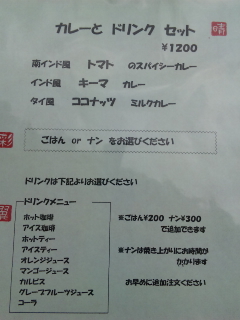 カレーと ドリンク セット
¥1200
晴
南インド風 トマト のスパイシーカレー
インド風 キーマ カレー
タイ風 ココナッツ ミルクカレー
彩
ごはん or ナン をお選びください
ドリンクは下記よりお選びください
ドリンクメニュー
ホット珈琲
アイス珈琲
ホットティー
アイスティー
オレンジジュース
マンゴージュース
カルピス
グレープフルーツジュース
コーラ
※ごはん¥200 ナン¥300
で追加できます
※ナンは焼き上がりにお時間が
かかります
お早めに追加注文ください